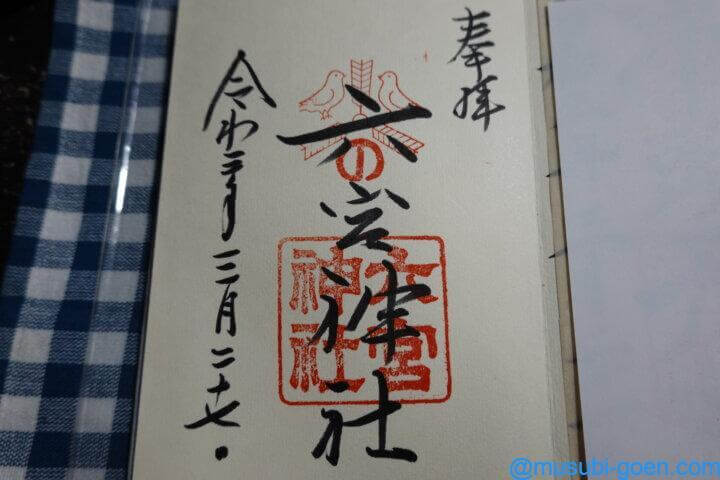 奉拝
六宮神社
の
六宮
神社
令和三年三月二十七日
@musubi-goen.com